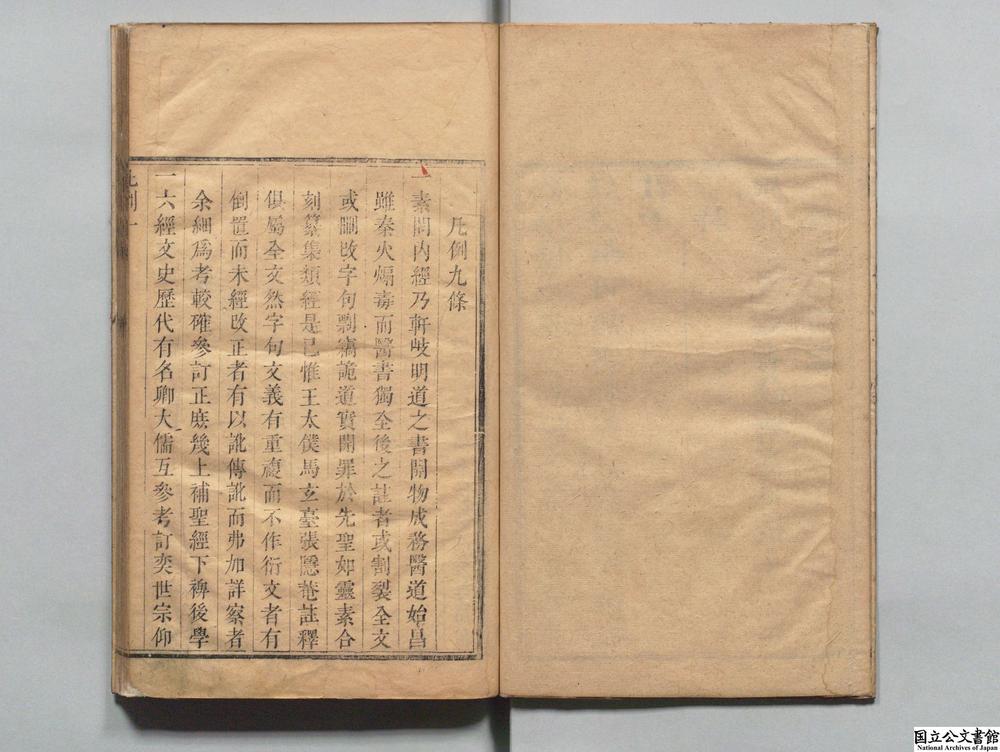 凡例九條
一素問內經乃軒岐明道之書開物成務醫道始昌
雖秦火煽毒而醫書獨全後之註者或割裂全文
或刪改字句剽竊詭道實開罪於先聖如靈素合
刻纂集類經是已惟王太僕馬玄臺張隱菴註釋
俱屬全文然字句文義有重複而不作衍文者有
倒置而未經改正者有以訛傳訛而弗加詳察者
余細為考較確參訂正庶幾上補聖經下裨後學
一六經文史歷代有名卿大儒互參考訂奕世宗仰
凡例 一
国立公文書館
National Archives of Japan